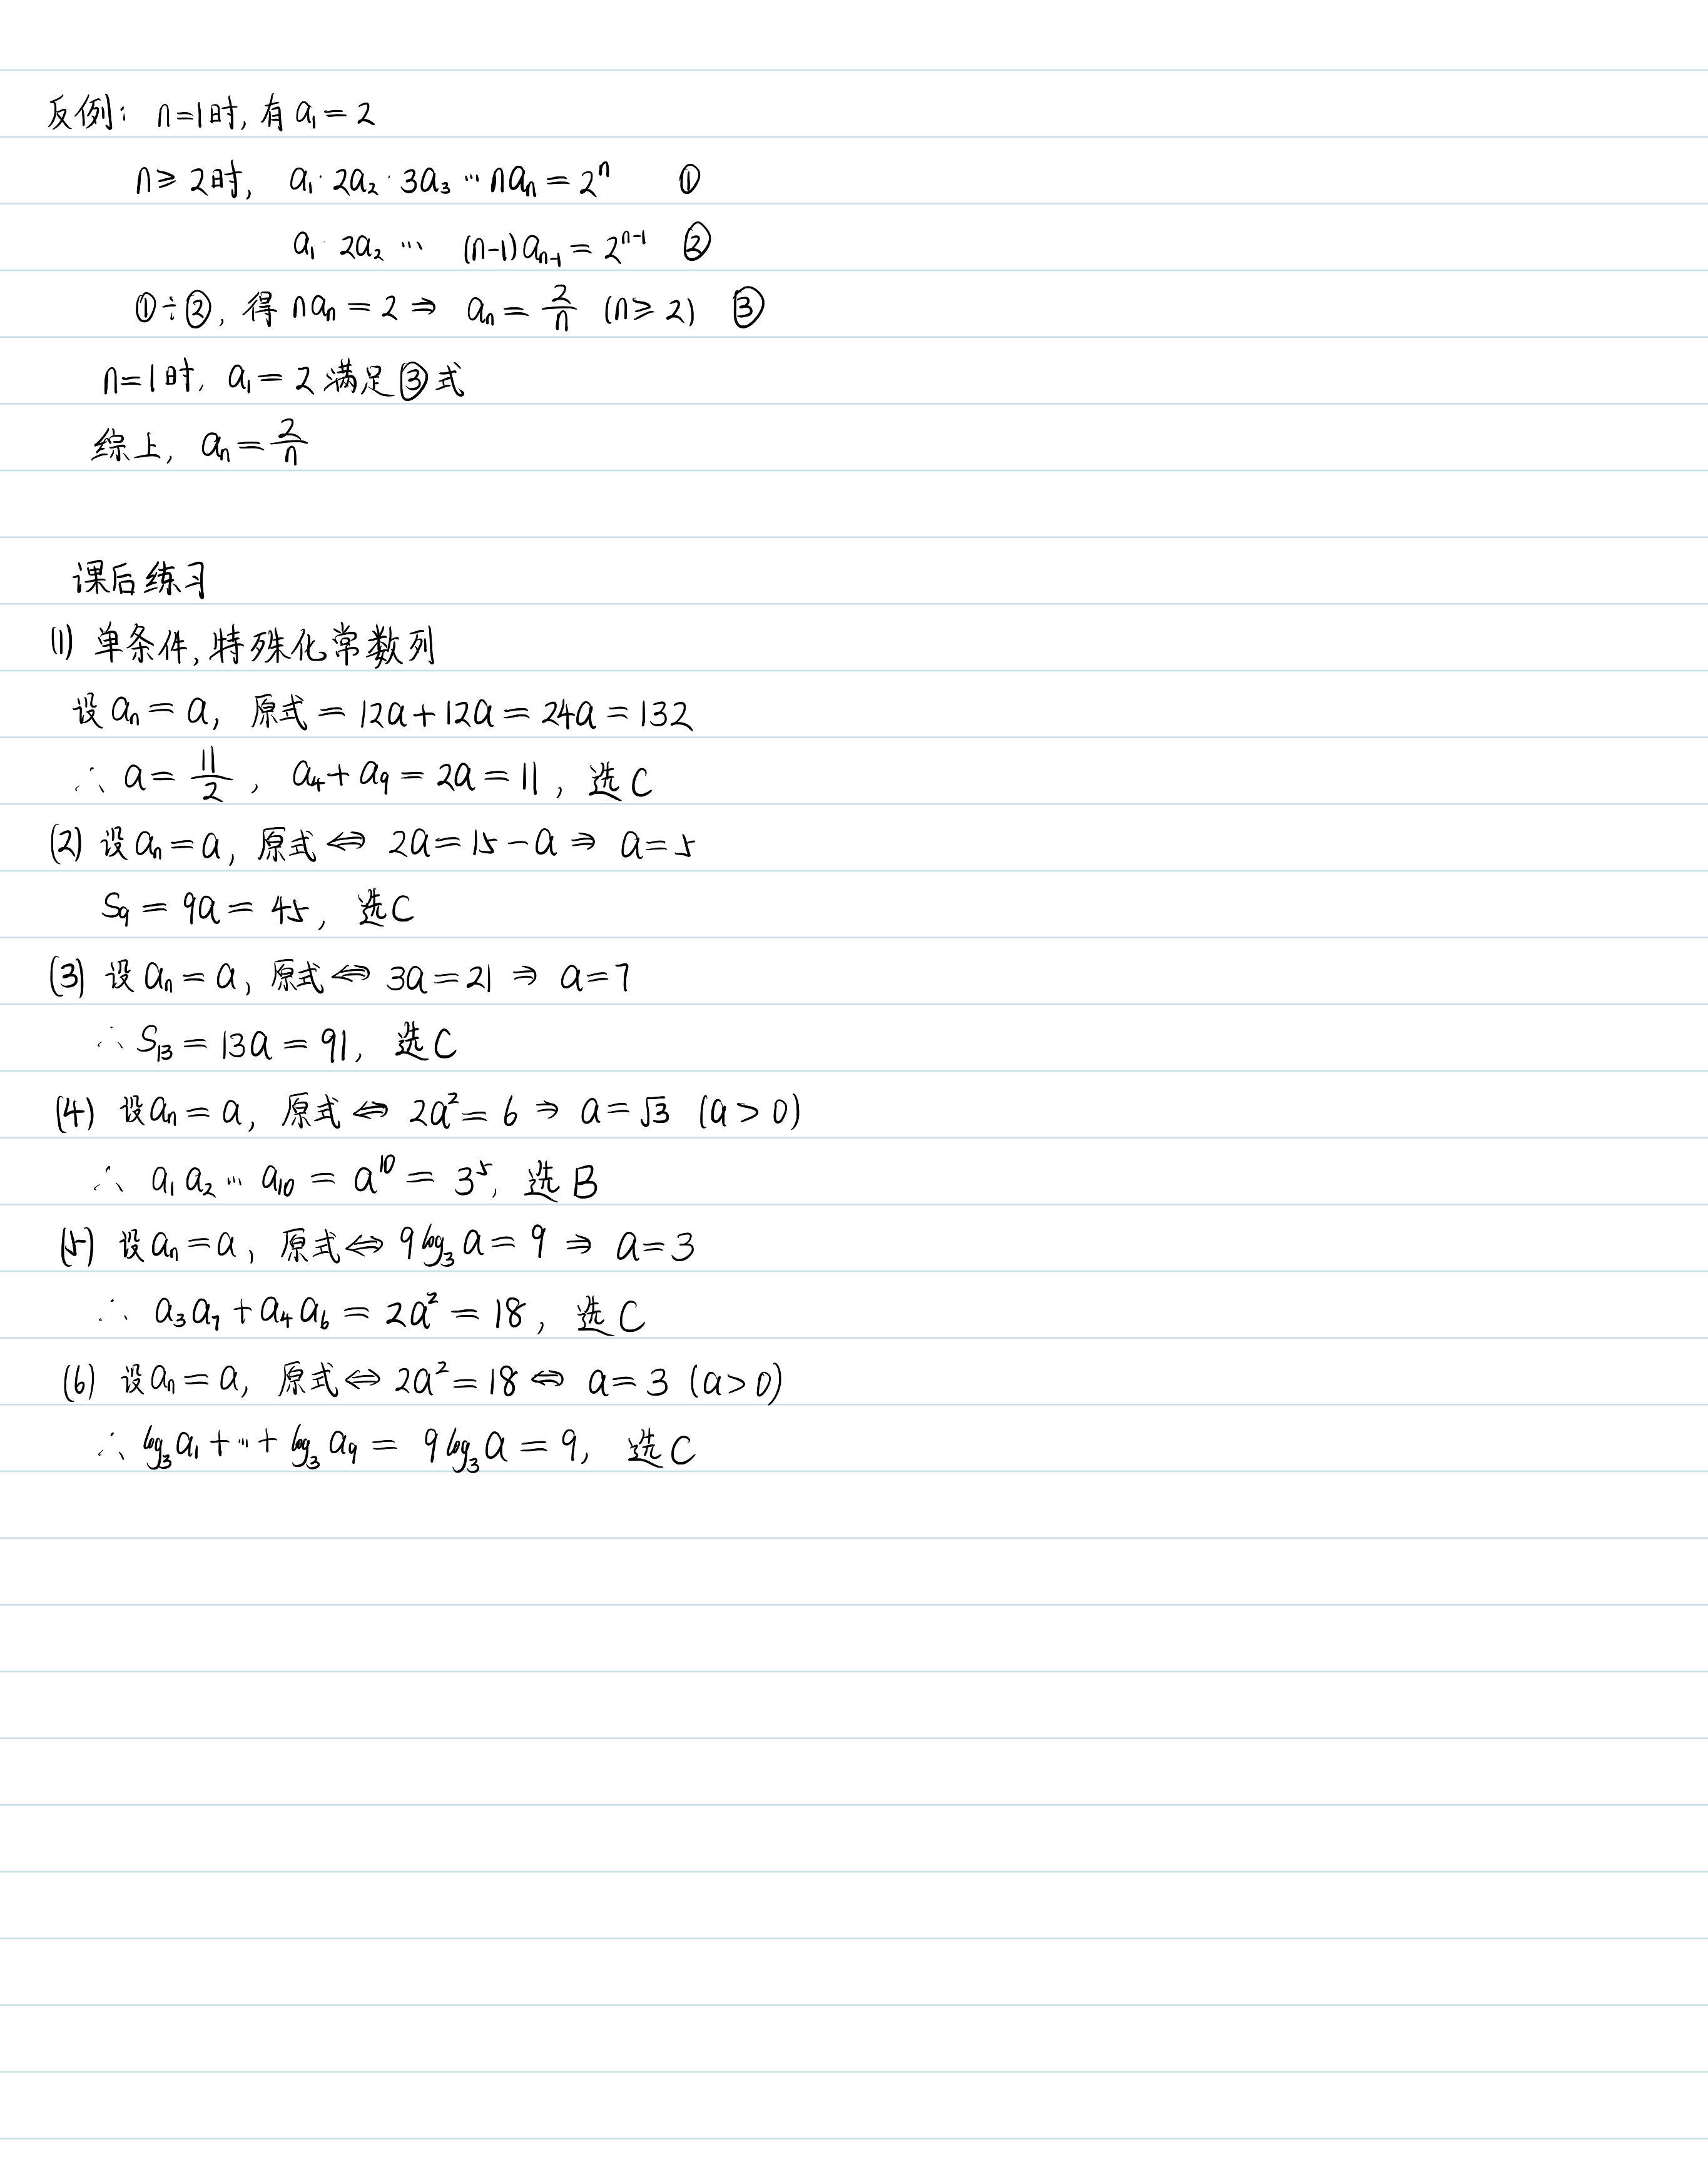 反例: n=1时,有 a₁=2
n≥2时, a₁·2a₂·3a₃…naₙ=2ⁿ ①
a₁·2a₂…(n-1)aₙ₋₁=2ⁿ⁻¹ ②
①÷②, 得 naₙ=2 ⇒ aₙ=2/n (n≥2) ③
n=1时, a₁=2 满足③式
综上, aₙ=2/n
课后练习
(1) 单条件,特殊化常数列
设aₙ=a, 原式=12a+12a=24a=132
∴ a=11/2, a₄+a₉=2a=11, 选C
(2) 设aₙ=a, 原式⇔ 2a=15-a ⇒ a=5
S₉=9a=45, 选C
(3) 设aₙ=a, 原式⇔ 3a=21 ⇒ a=7
∴ S₁₃=13a=91, 选C
(4) 设aₙ=a, 原式⇔ 2a²=6 ⇒ a=√3 (a>0)
∴ a₁a₂…a₁₀=a¹⁰=3⁵, 选B
(5) 设aₙ=a, 原式⇔ 9log₃a=9 ⇒ a=3
∴ a₃a₇+a₄a₆=2a²=18, 选C
(6) 设aₙ=a, 原式⇔ 2a²=18 ⇔ a=3 (a>0)
∴ log₃a₁+…+log₃a₉=9log₃a=9, 选C